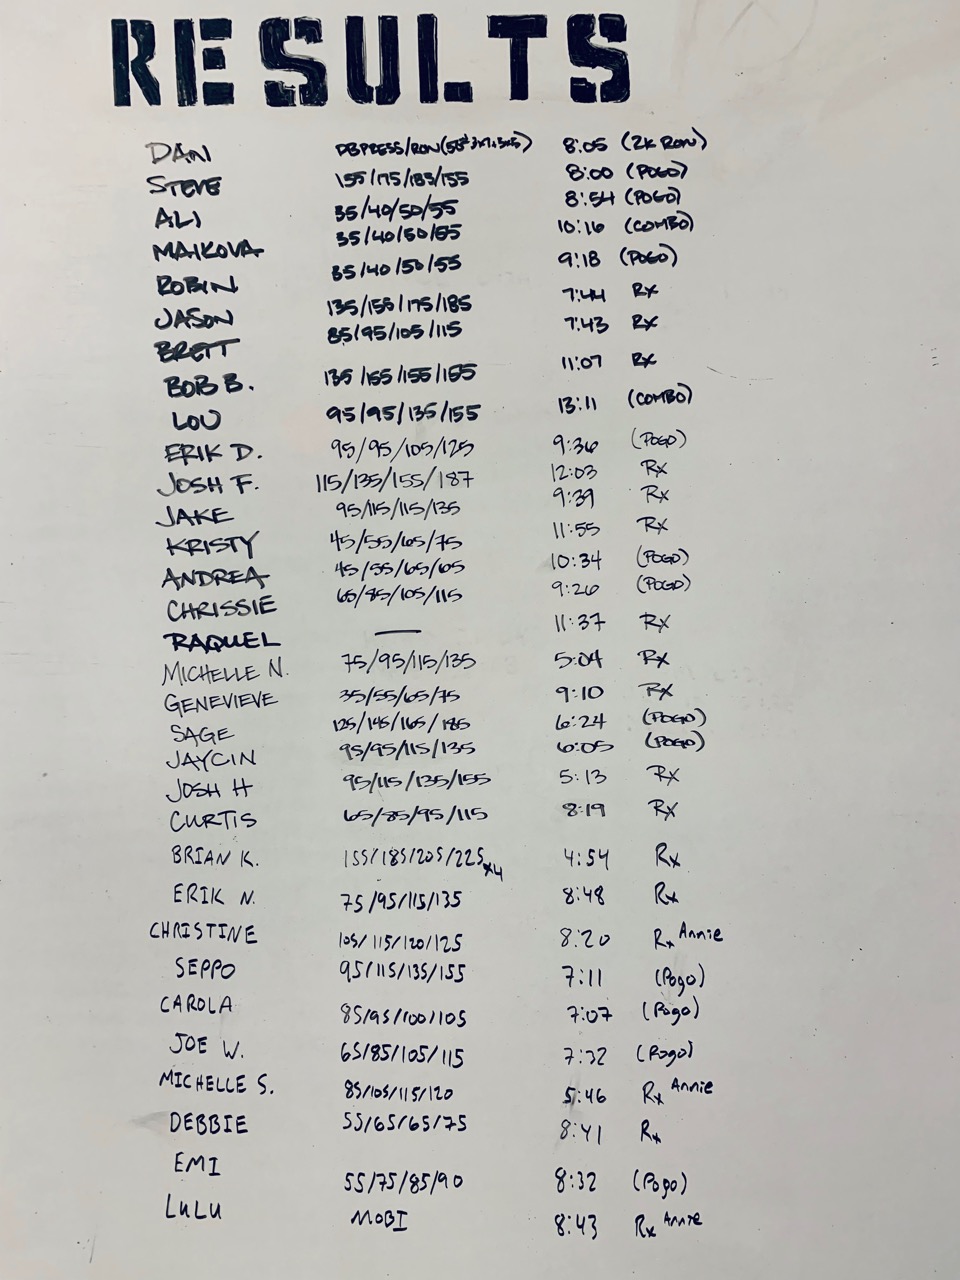 RESULTS
DAN DB PRESS/ROW 8:05 (2K ROW)
STEVE 155/175/185/155 8:00 (POGO)
ALI 35/40/50/55 8:54 (POGO)
MAIKOVA 35/40/50/55 10:16 (COMBO)
ROBIN 35/40/50/55 9:18 (POGO)
JASON 135/155/175/185 7:44 RX
BRETT 85/95/105/115 7:43 RX
BOB B. 135/155/155/155 11:07 RX
LOU 95/95/135/155 13:11 (COMBO)
ERIK D. 95/95/105/125 9:36 (POGO)
JOSH F. 115/135/155/187 12:03 RX
JAKE 95/115/115/135 9:39 RX
KRISTY 45/55/65/75 11:55 RX
ANDREA 45/55/65/65 10:34 (POGO)
CHRISSIE 65/85/105/115 9:26 (POGO)
RAQUEL — 11:37 RX
MICHELLE N. 75/95/115/135 5:04 RX
GENEVIEVE 35/55/65/75 9:10 RX
SAGE 125/145/165/185 6:24 (POGO)
JAYCIN 95/95/115/135 6:05 (POGO)
JOSH H 95/115/135/155 5:13 RX
CURTIS 65/85/95/115 8:19 RX
BRIAN K. 155/185/205/225 x4 4:54 Rx
ERIK N. 75/95/115/135 8:48 Rx
CHRISTINE 105/115/120/125 8:20 Rx Annie
SEPPO 95/115/135/155 7:11 (Pogo)
CAROLA 85/95/100/105 7:07 (Pogo)
JOE W. 65/85/105/115 7:32 (Pogo)
MICHELLE S. 85/105/115/120 5:46 Rx Annie
DEBBIE 55/65/65/75 8:41 Rx
EMI 55/75/85/90 8:32 (Pogo)
LULU MOBI 8:43 Rx Annie